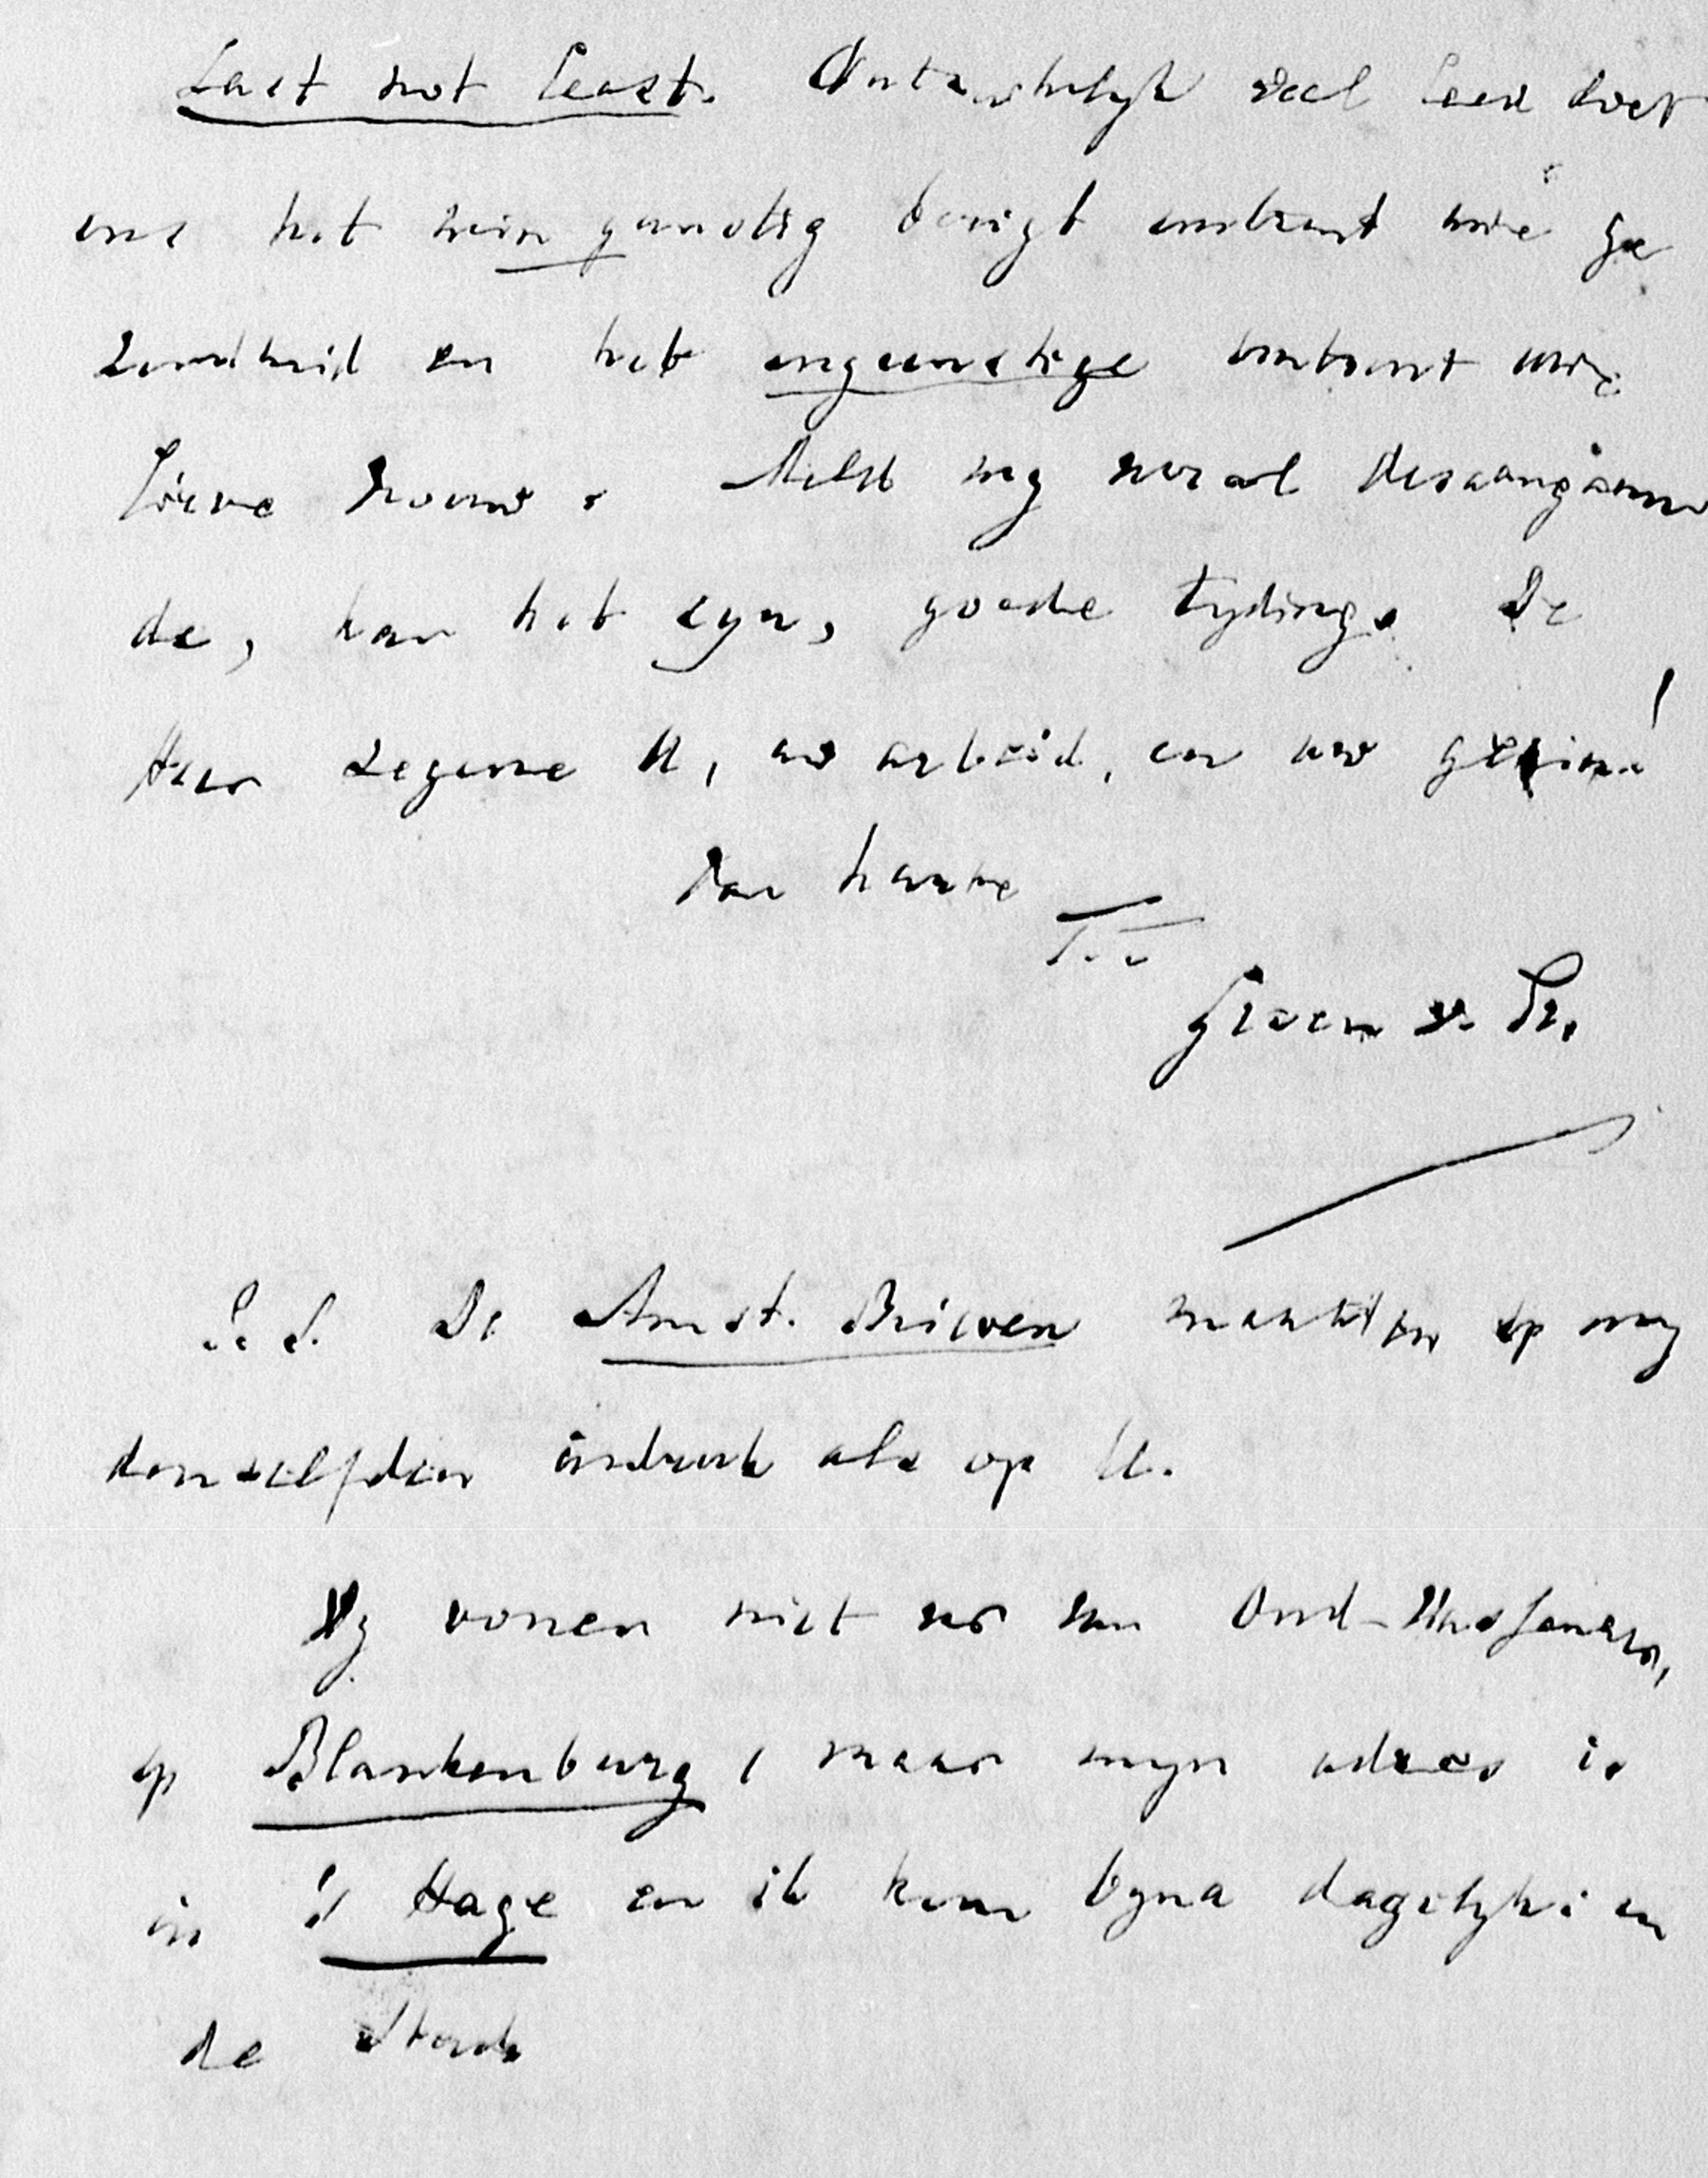 Last not least. Onuitsprekelyk veel leed doet
ons het min gunstig berigt omtrent uwe ge
zondheid en het ongunstige omtrent uwe
lieve vrouw. Meld my vooral desaangaan
de, kan het zyn, goede tyding. De
Heer zegene U, uw arbeid, en uw gezin!
Van harte
T.t.
Groen v. Pr.
P.S. De Amst. Brieven maakten op my
denzelfden indruk als op U.
Wy wonen niet ver van Oud-Wassenaar,
op Blankenburg, maar myn adres is
in 's Hage en ik kom byna dagelyks in
de Stad